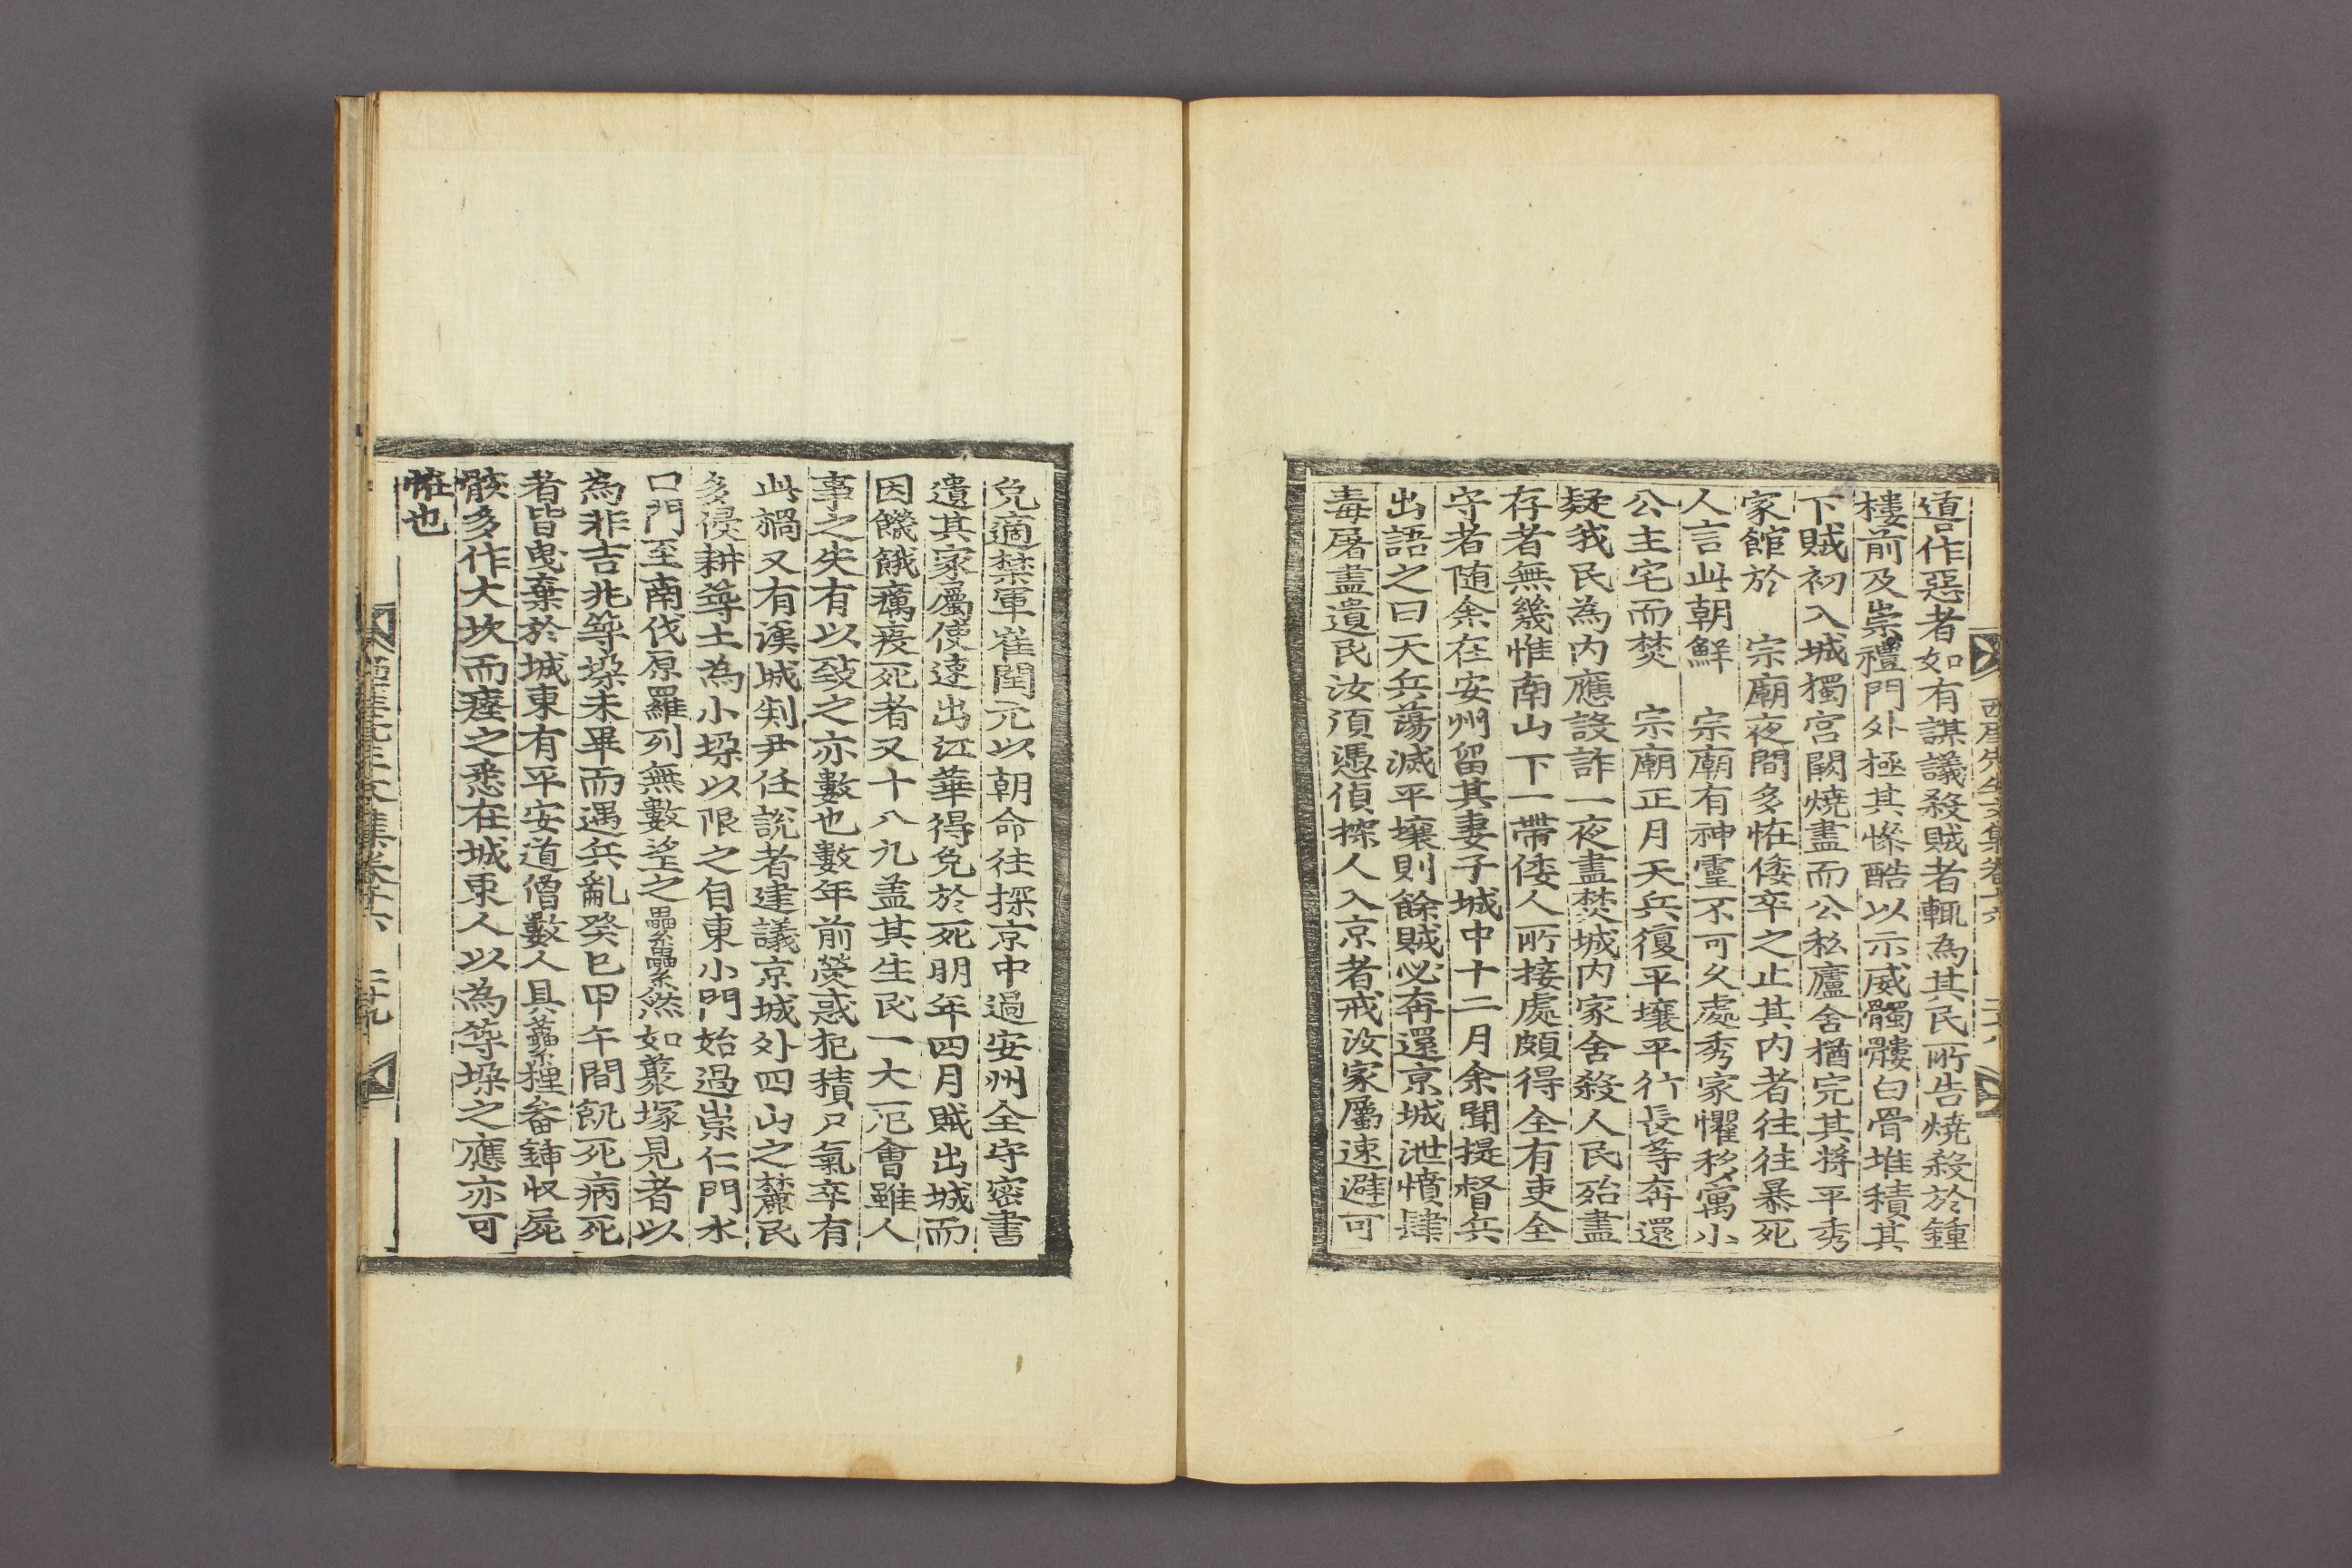 道作惡者如有謀議殺賊者輒為其民所告燒殺於鍾
樓前及崇禮門外極其慘酷以示威髑髏白骨堆積其
下賊初入城獨宮闕燒盡而公私廬舍猶完其將平秀
家館於 宗廟夜間多恠倭卒之止其內者往往暴死
人言此朝鮮 宗廟有神靈不可久處秀家懼移寓小
公主宅而焚 宗廟正月天兵復平壤平行長等奔還
疑我民為內應設詐一夜盡焚城內家舍殺人民殆盡
存者無幾惟南山下一帶倭人所接處頗得全有吏全
守者随余在安州留其妻子城中十二月余聞提督兵
出語之曰天兵蕩滅平壤則餘賊必奔還京城泄憤肆
毒屠盡遺民汝須憑偵探人入京者戒汝家屬速避可
免適禁軍崔閏元以朝命往探京中過安州全守密書
遺其家屬使速出江華得免於死明年四月賊出城而
因饑餓癘疫死者又十八九盖其生民一大厄會雖人
事之失有以致之亦數也數年前熒惑犯積尸氣卒有
此禍又有漢城判尹任說者建議京城外四山之麓民
多侵耕築土為小垜以限之自東小門始過崇仁門水
口門至南伐原羅列無數望之纍纍然如叢塚見者以
為非吉兆築垜未畢而遇兵亂癸巳甲午間飢死病死
者皆曳棄於城東有平安道僧數人具虆梩畚鍤收屍
骸多作大坎而瘞之悉在城東人以為築垜之應亦可
恠也
西厓先生文集卷十六 二十九